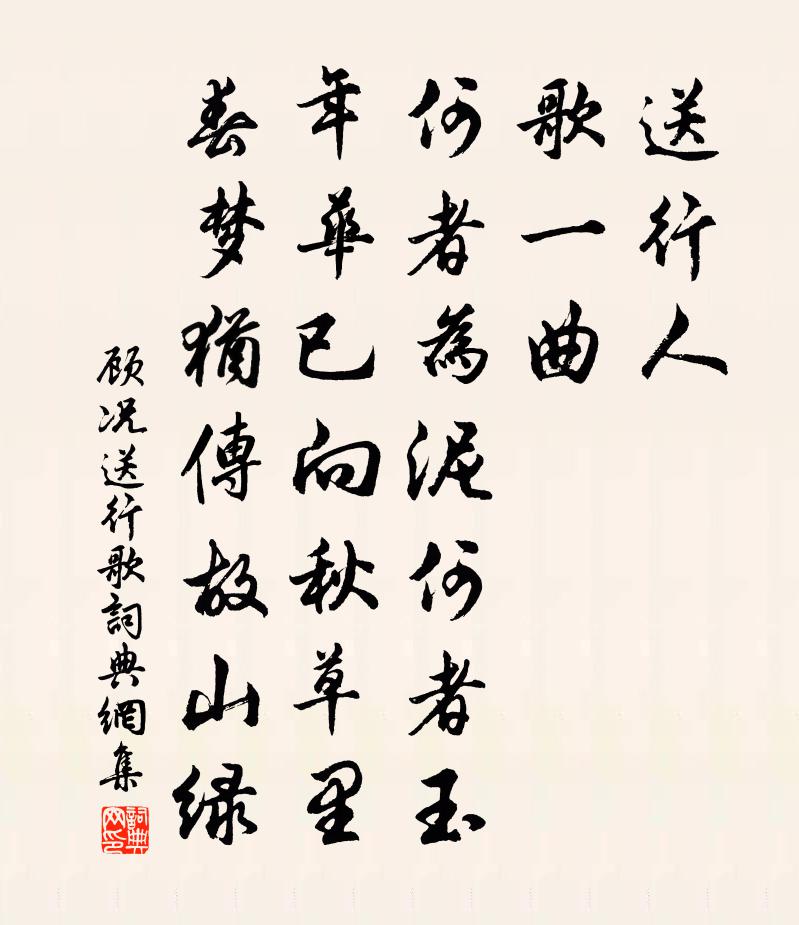 送行人
歌一曲
何者為泥何者玉
年華已向秋草里
春梦猶傳故山绿
顾况送行歌詞典網集
詞典网印